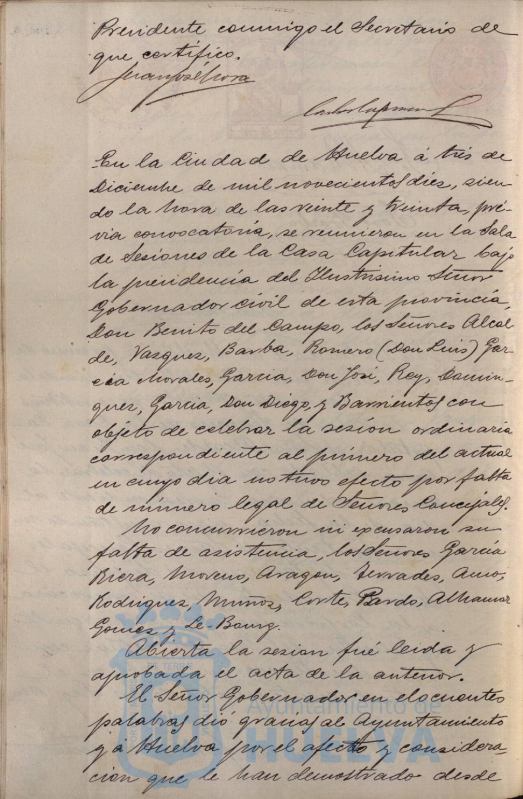 Presidente conmigo el Secretario de
que certifico.
En la Ciudad de Huelva á tres de
Diciembre de mil novecientos diez, sien-
do la hora de las veinte y treinta, pré-
via convocatoria, se reunieron en la Sala
de Sesiones de la Casa Capitular bajo
la presidencia del Ilustrisimo Señor
Gobernador civil de esta provincia,
Don Benito del Campo, los Señores Alcal
de, Vazquez, Barba, Romero (Don Luis) Gar-
cia Morales, Garcia, Don José, Rey, Domin-
guez, Garcia, Don Diego, y Barrientos con
objeto de celebrar la sesión ordinaria
correspondiente al primero del actual
en cuyo dia no tuvo efecto por falta
de número legal de Señores Concejales.
No concurrieron ni excusaron su
falta de asistencia, los Señores García
Riera, Moreno, Aragon, Terrades,
Rodriguez, Muñoz, Corte, Pardo,
Gomez y Le-Bourg.
Abierta la sesion fué leida y
aprobada el acta de la anterior.
El Señor Gobernador en elocuentes
palabras dio gracias al Ayuntamiento
y a Huelva por el afecto y considera
cion que le han demostrado desde
Ayuntamiento de
HUELVA